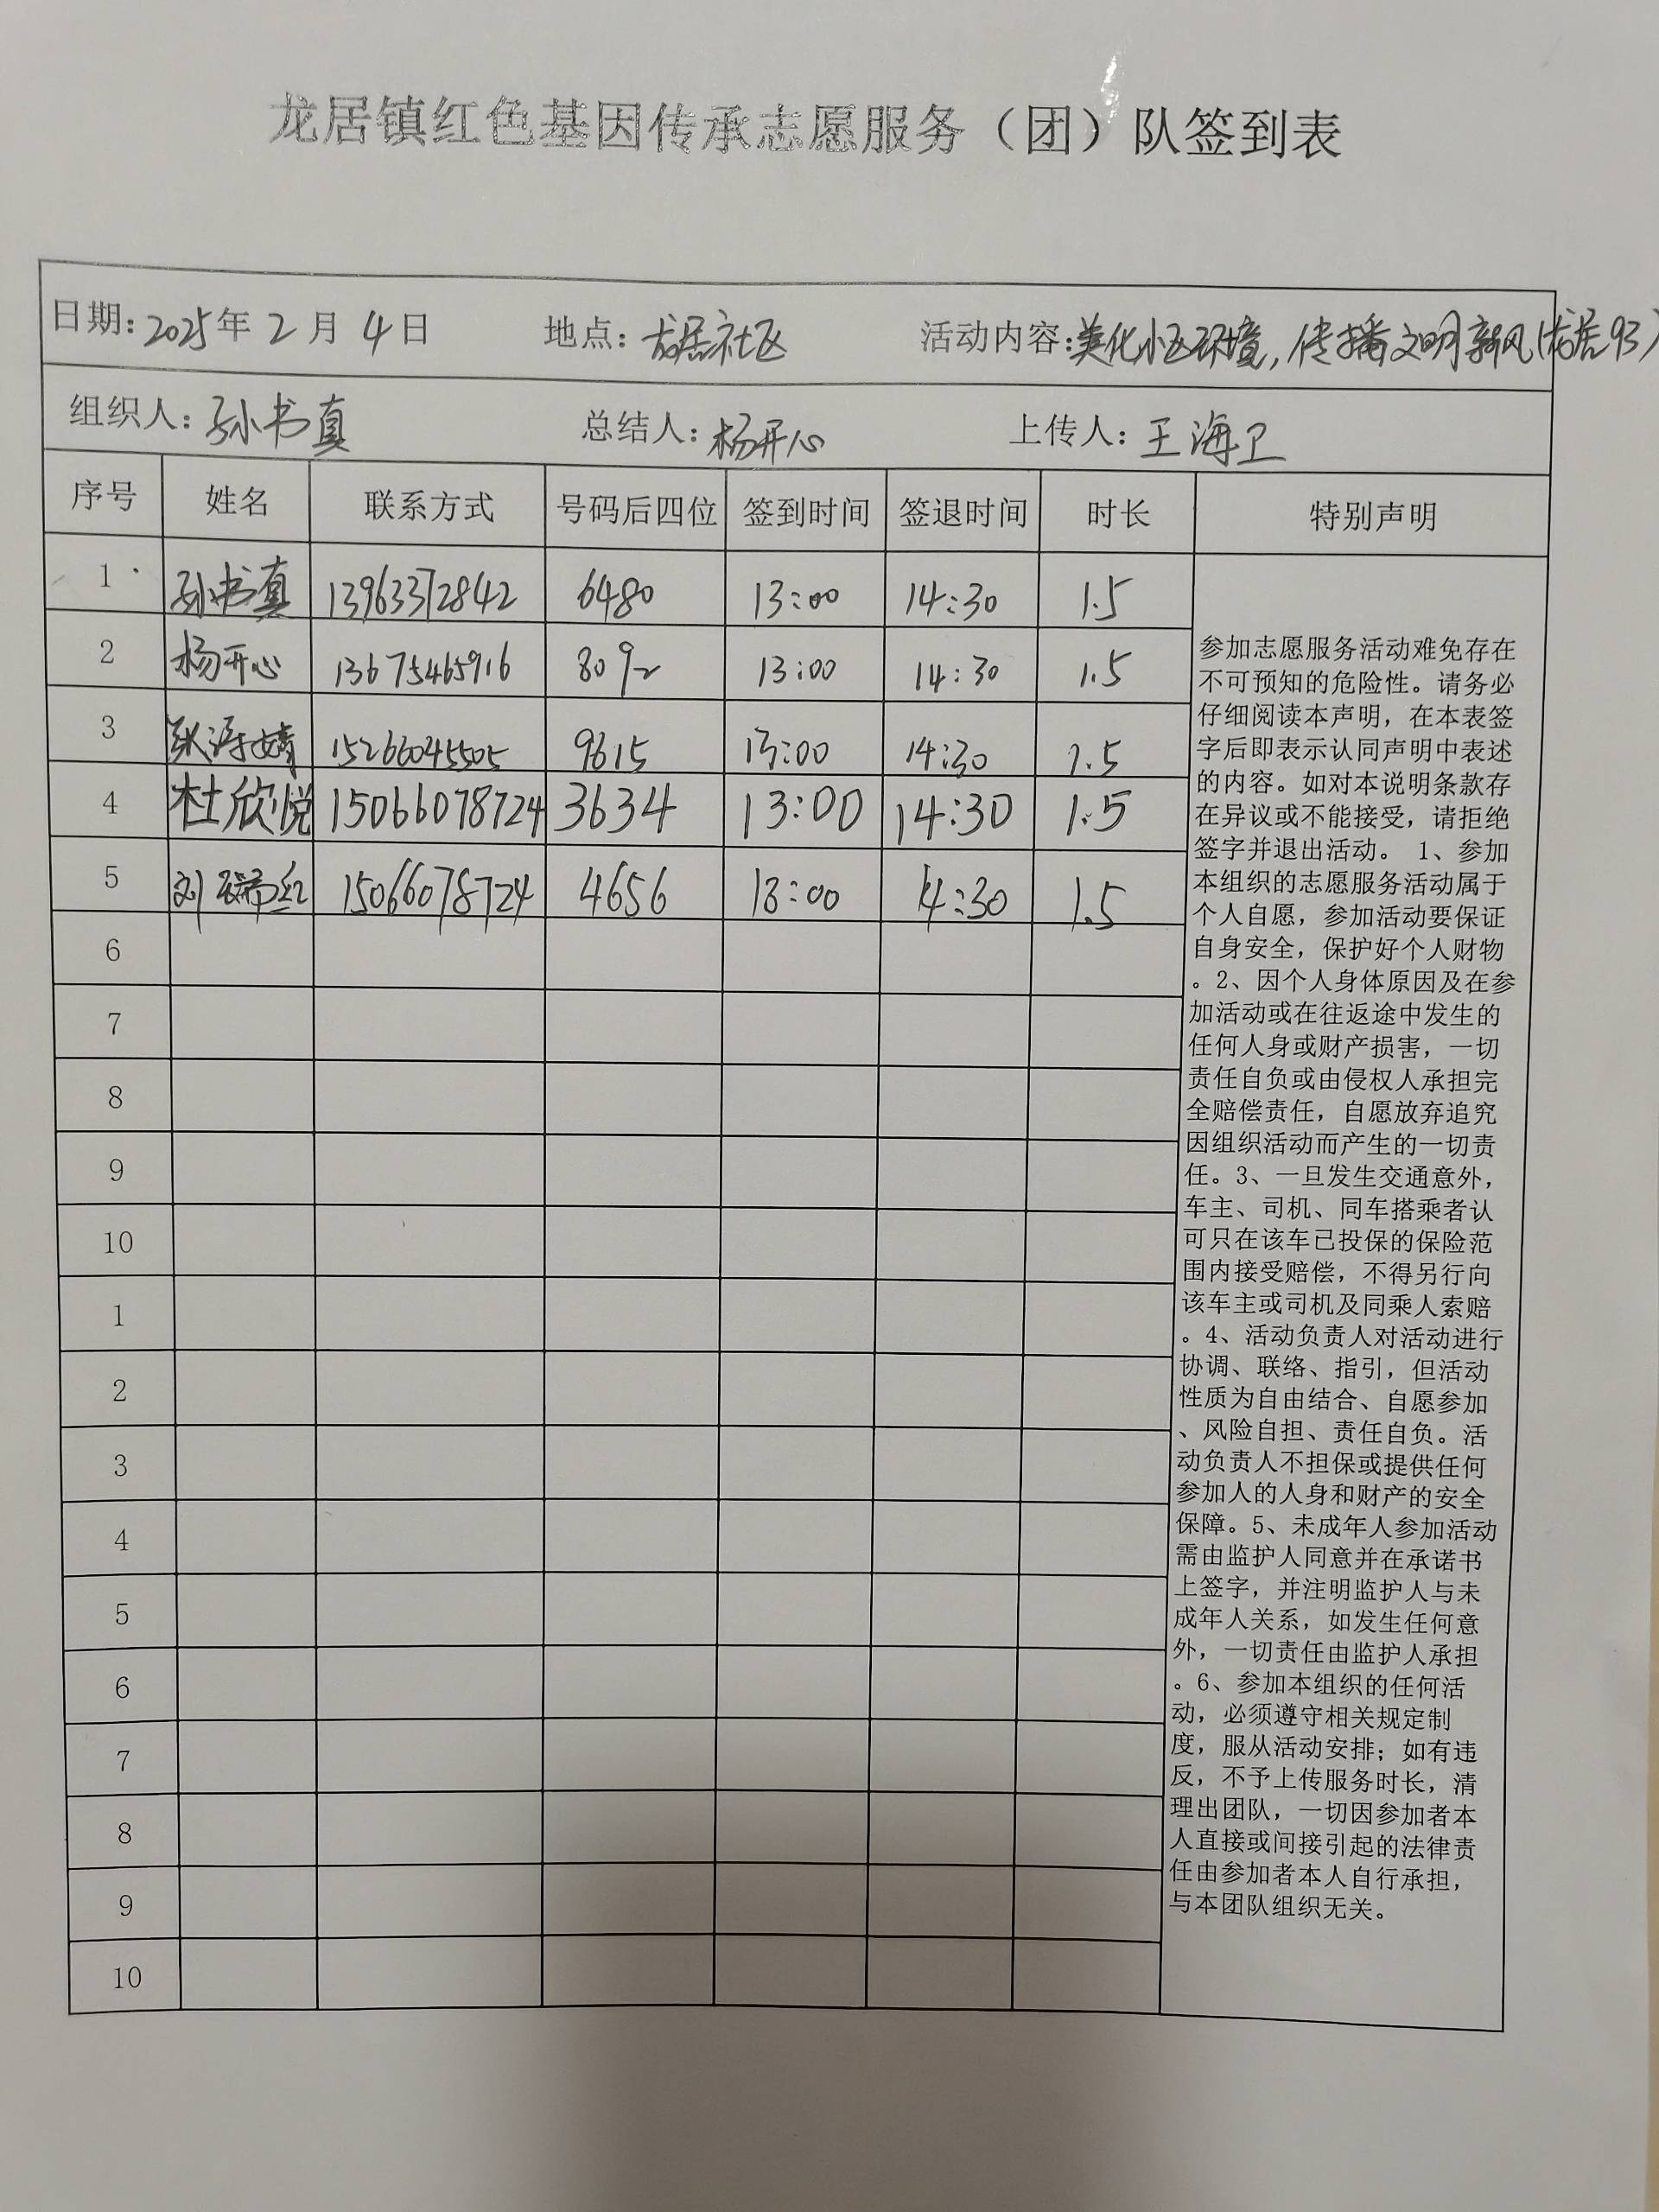 龙居镇红色基因传承志愿服务（团）队签到表
日期：2025年 2 月 4 日 地点：龙居社区 活动内容：美化小区环境，传播文明新风(龙居93)
组织人：孙书真 总结人：杨开心 上传人：王海卫
序号 姓名 联系方式 号码后四位 签到时间 签退时间 时长 特别声明
1 孙书真 13963372842 6480 13:00 14:30 1.5
2 杨开心 13675465916 8092 13:00 14:30 1.5
3 15266045505 9615 13:00 14:30 1.5
4 杜欣悦 15066078724 3634 13:00 14:30 1.5
5 刘瑞红 15066078724 4656 13:00 14:30 1.5
6
7
8
9
10
1
2
3
4
5
6
7
8
9
10
参加志愿服务活动难免存在
不可预知的危险性。请务必
仔细阅读本声明，在本表签
字后即表示认同声明中表述
的内容。如对本说明条款存
在异议或不能接受，请拒绝
签字并退出活动。 1、参加
本组织的志愿服务活动属于
个人自愿，参加活动要保证
自身安全，保护好个人财物
。2、因个人身体原因及在参
加活动或在往返途中发生的
任何人身或财产损害，一切
责任自负或由侵权人承担完
全赔偿责任，自愿放弃追究
因组织活动而产生的一切责
任。3、一旦发生交通意外，
车主、司机、同车搭乘者认
可只在该车已投保的保险范
围内接受赔偿，不得另行向
该车主或司机及同乘人索赔
。4、活动负责人对活动进行
协调、联络、指引，但活动
性质为自由结合、自愿参加
、风险自担、责任自负。活
动负责人不担保或提供任何
参加人的人身和财产的安全
保障。5、未成年人参加活动
需由监护人同意并在承诺书
上签字，并注明监护人与未
成年人关系，如发生任何意
外，一切责任由监护人承担
。6、参加本组织的任何活
动，必须遵守相关规定制
度，服从活动安排；如有违
反，不予上传服务时长，清
理出团队，一切因参加者本
人直接或间接引起的法律责
任由参加者本人自行承担，
与本团队组织无关。